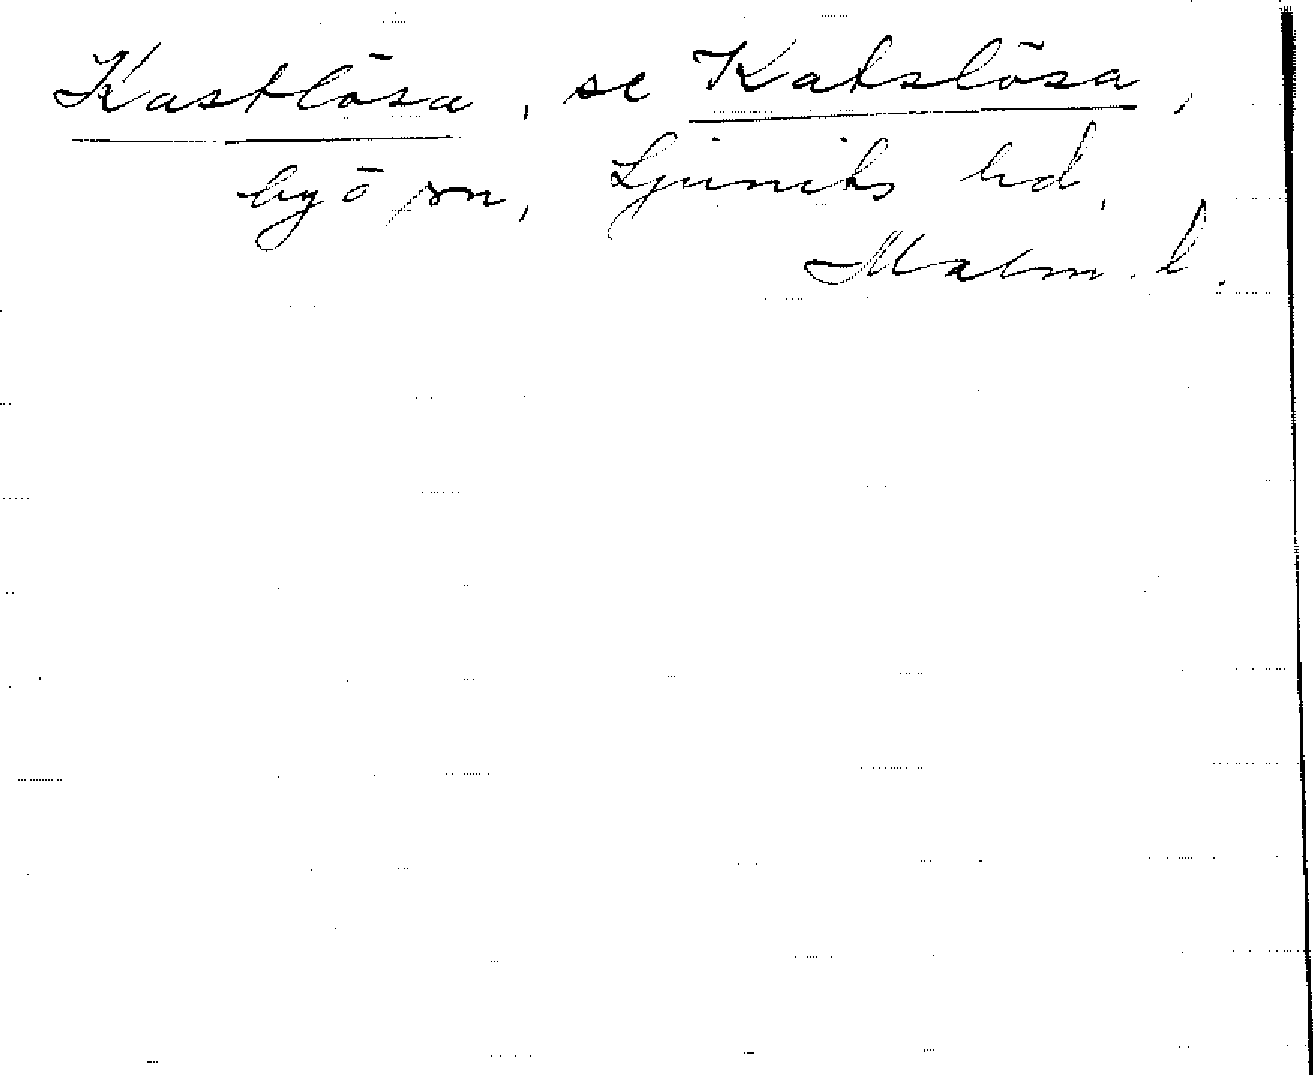 Kastlösa, se Katslösa,
hyö sn, Ljunits hd,
Malm. l.